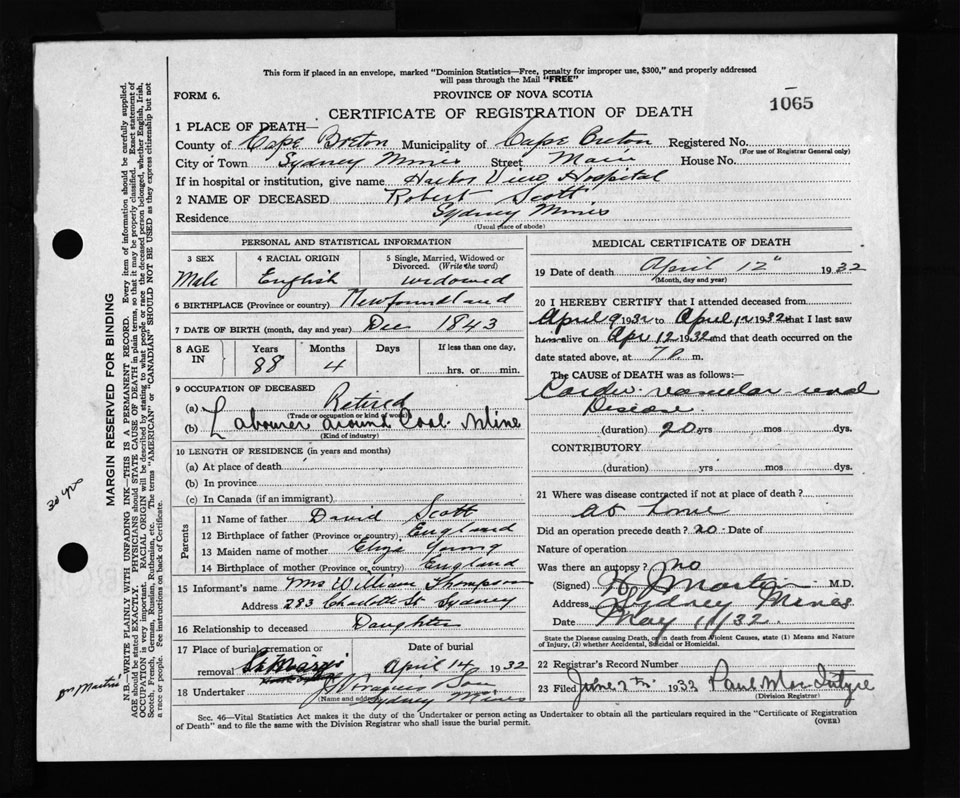 This form if placed in an envelope, marked "Dominion Statistics—Free, penalty for improper use, $300," and properly addressed
will pass through the Mail "FREE"
FORM 6. PROVINCE OF NOVA SCOTIA 1065
CERTIFICATE OF REGISTRATION OF DEATH
1 PLACE OF DEATH—
County of Cape Breton Municipality of Cape Breton Registered No.
(For use of Registrar General only)
City or Town Sydney Mines Street Main House No.
If in hospital or institution, give name Harbor View Hospital
2 NAME OF DECEASED Robert Scott
Residence Sydney Mines
(Usual place of abode)
PERSONAL AND STATISTICAL INFORMATION
3 SEX 4 RACIAL ORIGIN 5 Single, Married, Widowed or
Divorced. (Write the word)
Male English widowed
6 BIRTHPLACE (Province or country) Newfoundland
7 DATE OF BIRTH (month, day and year) Dec 1843
8 AGE IN Years Months Days If less than one day,
88 4 hrs. or min.
9 OCCUPATION OF DECEASED
(a) Retired
(Trade or occupation or kind of work)
(b) Labourer around Coal Mine
(Kind of industry)
10 LENGTH OF RESIDENCE (in years and months)
(a) At place of death
(b) In province
(c) In Canada (if an immigrant)
Parents
11 Name of father David Scott
12 Birthplace of father (Province or country) England
13 Maiden name of mother Eliza Young
14 Birthplace of mother (Province or country) England
15 Informant's name Mrs William Thompson
Address 283 Charlotte St. Sydney
16 Relationship to deceased Daughter
17 Place of burial, cremation or Date of burial
removal April 14 1932
18 Undertaker
(Name and address) Sydney Mines
MEDICAL CERTIFICATE OF DEATH
19 Date of death April 12" 1932
(Month, day and year)
20 I HEREBY CERTIFY that I attended deceased from
April 9 1932 to April 12 1932 that I last saw
him alive on Apr 12 1932 and that death occurred on the
date stated above, at 7 P. m.
The CAUSE of DEATH was as follows:
Cardio-vascular-renal
Disease.
(duration) 20 yrs mos dys.
CONTRIBUTORY
(duration) yrs mos dys.
21 Where was disease contracted if not at place of death?
at home
Did an operation precede death? no Date of
Nature of operation
Was there an autopsy? no
(Signed) Martin M.D.
Address Sydney Mines
Date May 1/32.
State the Disease causing Death, or in death from Violent Causes, state (1) Means and Nature
of Injury, (2) whether Accidental, Suicidal or Homicidal.
22 Registrar's Record Number
23 Filed June 2 1932 Paul MacIntyre
(Division Registrar)
Sec. 46—Vital Statistics Act makes it the duty of the Undertaker or person acting as Undertaker to obtain all the particulars required in the "Certificate of Registration
of Death" and to file the same with the Division Registrar who shall issue the burial permit. (OVER)
MARGIN RESERVED FOR BINDING
N.B.—WRITE PLAINLY WITH UNFADING INK—THIS IS A PERMANENT RECORD. Every item of information should be carefully supplied.
AGE should be stated EXACTLY. PHYSICIANS should STATE CAUSE OF DEATH in plain terms, so that it may be properly classified. Exact statement of
OCCUPATION is very important. RACIAL ORIGIN will be described by stating to what people or race the deceased person belonged, whether English, Irish,
Scotch, French, German, Russian, Ruthenian, etc. The terms "AMERICAN" or "CANADIAN" SHOULD NOT BE USED as they express citizenship but not
a race or people. See instructions on back of Certificate.
30 yrs
Dr Martin